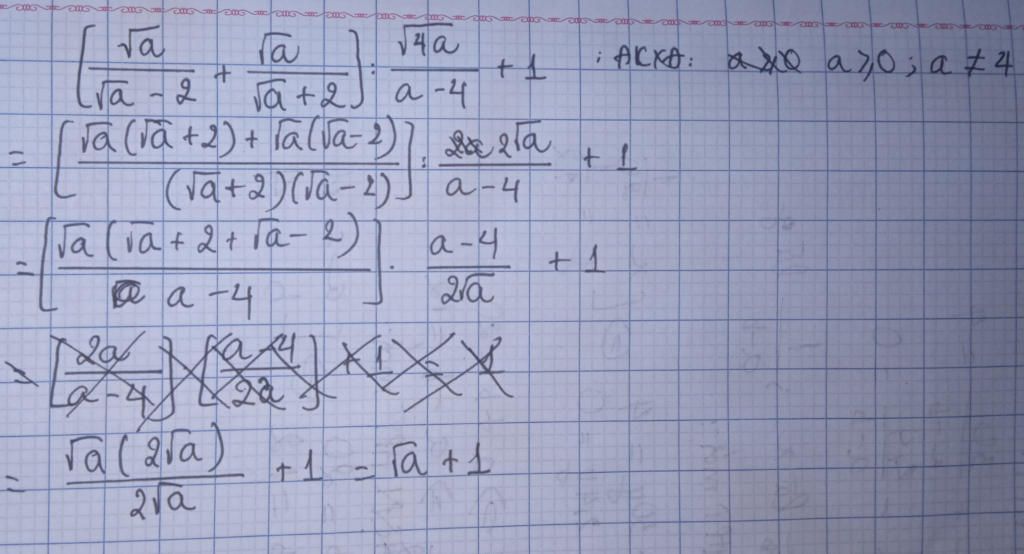 [√a/(√a - 2) + √a/(√a + 2)] : √4a/(a - 4) + 1 ; ДСКД: a ≥ 0 ; a ≠ 4
= [(√a(√a + 2) + √a(√a - 2))/((√a + 2)(√a - 2))] : 2√a/(a - 4) + 1
= [√a(√a + 2 + √a - 2)/(a - 4)] · (a - 4)/(2√a) + 1
= √a(2√a)/(2√a) + 1 = √a + 1